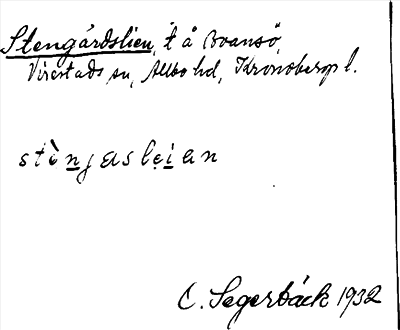 Stengärdslien, t å Boansö,
Virestads sn, Allbo hd, Kronobergs l.
stèṉjasleian
C. Segerbäck 1932